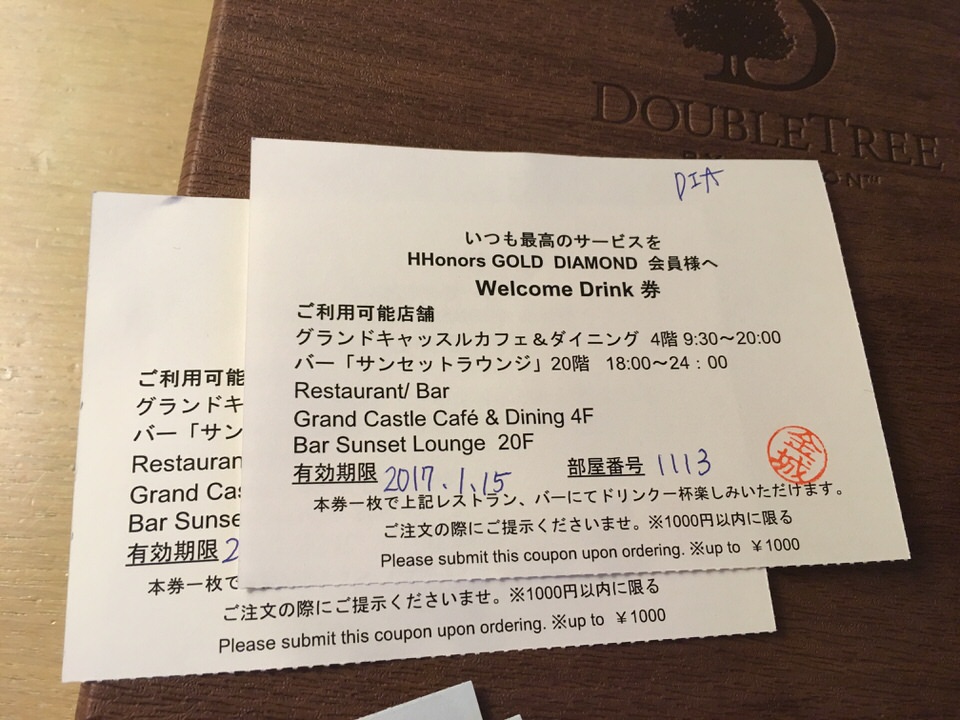 DOUBLETREE
DIA
いつも最高のサービスを
HHonors GOLD DIAMOND 会員様へ
Welcome Drink 券
ご利用可能店舗
グランドキャッスルカフェ&ダイニング 4階 9:30～20:00
バー「サンセットラウンジ」20階 18:00～24：00
Restaurant/ Bar
Grand Castle Café & Dining 4F
Bar Sunset Lounge 20F
有効期限 2017.1.15 部屋番号 1113
金城
本券一枚で上記レストラン、バーにてドリンク一杯楽しみいただけます。
ご注文の際にご提示くださいませ。※1000円以内に限る
Please submit this coupon upon ordering. ※up to ￥1000
ご利用可能
グランドキ
バー「サン
Restauran
Grand Cas
Bar Sunse
有効期限 2
本券一枚で
ご注文の際にご提示くださいませ。※1000円以内に限る
Please submit this coupon upon ordering. ※up to ￥1000